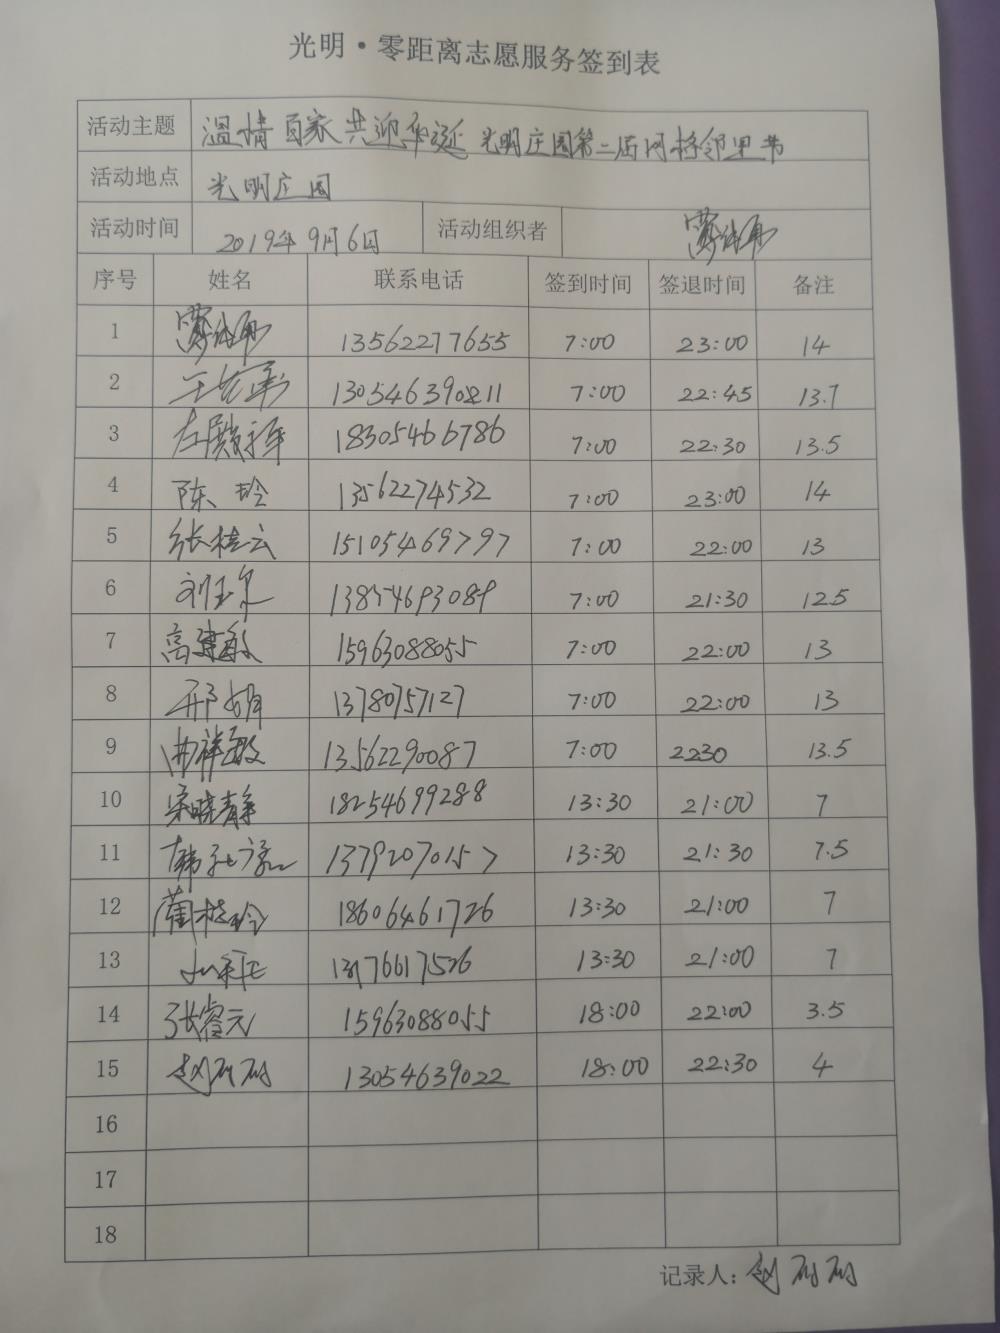 光明·零距离志愿服务签到表
活动主题 温情百家 共迎华诞 光明庄园第二届网格邻里节
活动地点 光明庄园
活动时间 2019年9月6日 活动组织者
序号 姓名 联系电话 签到时间 签退时间 备注
1 13562277655 7:00 23:00 14
2 7:00 22:45 13.7
3 18305466786 7:00 22:30 13.5
4 陈玲 13562274532 7:00 23:00 14
5 张桂云 15105469797 7:00 22:00 13
6 刘玉泉 13854693089 7:00 21:30 12.5
7 高建敏 15963088055 7:00 22:00 13
8 邢娟 13780757127 7:00 22:00 13
9 曲祥敏 13562290087 7:00 2230 13.5
10 宋晓静 18254699288 13:30 21:00 7
11 13792070157 13:30 21:30 7.5
12 蔺桂玲 18606461726 13:30 21:00 7
13 13:30 21:00 7
14 张睿元 15963088055 18:00 22:00 3.5
15 赵丽丽 13054639022 18:00 22:30 4
16
17
18
记录人：赵丽丽